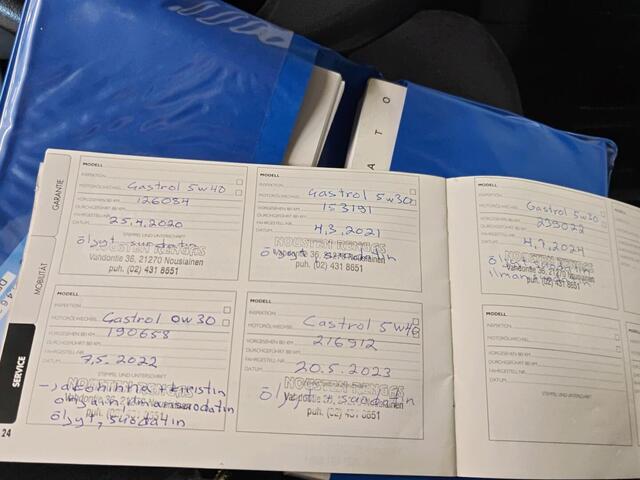 ATO
GARANTIE
MOBILITÄT
SERVICE
24
MODELL
INSPEKTION
MOTORÖLWECHSEL Castrol 5w40
VORGESEHEN BEI KM 126084
DURCHGEFÜHRT BEI KM
FAHRGESTELL-NR.
DATUM 25.4.2020
STEMPEL UND UNTERSCHRIFT
öljyt suodatin
NOUSTEN RENGAS
Vahdontie 36, 21270 Nousiainen
puh. (02) 431 8651
MODELL
INSPEKTION
MOTORÖLWECHSEL Castrol 5w30
VORGESEHEN BEI KM 153191
DURCHGEFÜHRT BEI KM
FAHRGESTELL-NR.
DATUM 4.3.2021
öljyt suodatin
NOUSTEN RENGAS
Vahdontie 36, 21270 Nousiainen
puh. (02) 431 8651
MODELL
INSPEKTION
MOTORÖLWECHSEL Castrol 5w30
VORGESEHEN BEI KM 239022
DURCHGEFÜHRT BEI KM
FAHRGESTELL-NR.
DATUM
NOUSTEN RENGAS
Vahdontie 36, 21270 Nousiainen
puh. (02) 431 8651
MODELL
INSPEKTION
MOTORÖLWECHSEL Castrol 0w30
VORGESEHEN BEI KM 190658
DURCHGEFÜHRT BEI KM
FAHRGESTELL-NR.
DATUM 7.5.2022
STEMPEL UND UNTERSCHRIFT
NOUSTEN RENGAS
öljyt, suodatin
MODELL
INSPEKTION
MOTORÖLWECHSEL Castrol 5w40
VORGESEHEN BEI KM 216912
DURCHGEFÜHRT BEI KM
FAHRGESTELL-NR.
DATUM 20.5.2023
NOUSTEN RENGAS
öljyt, suodatin
puh. (02) 431 8651
MODELL
INSPEKTION
MOTORÖLWECHSEL
VORGESEHEN BEI KM
DURCHGEFÜHRT BEI KM
FAHRGESTELL-NR.
DATUM
STEMPEL UND UNTERSCHRIFT